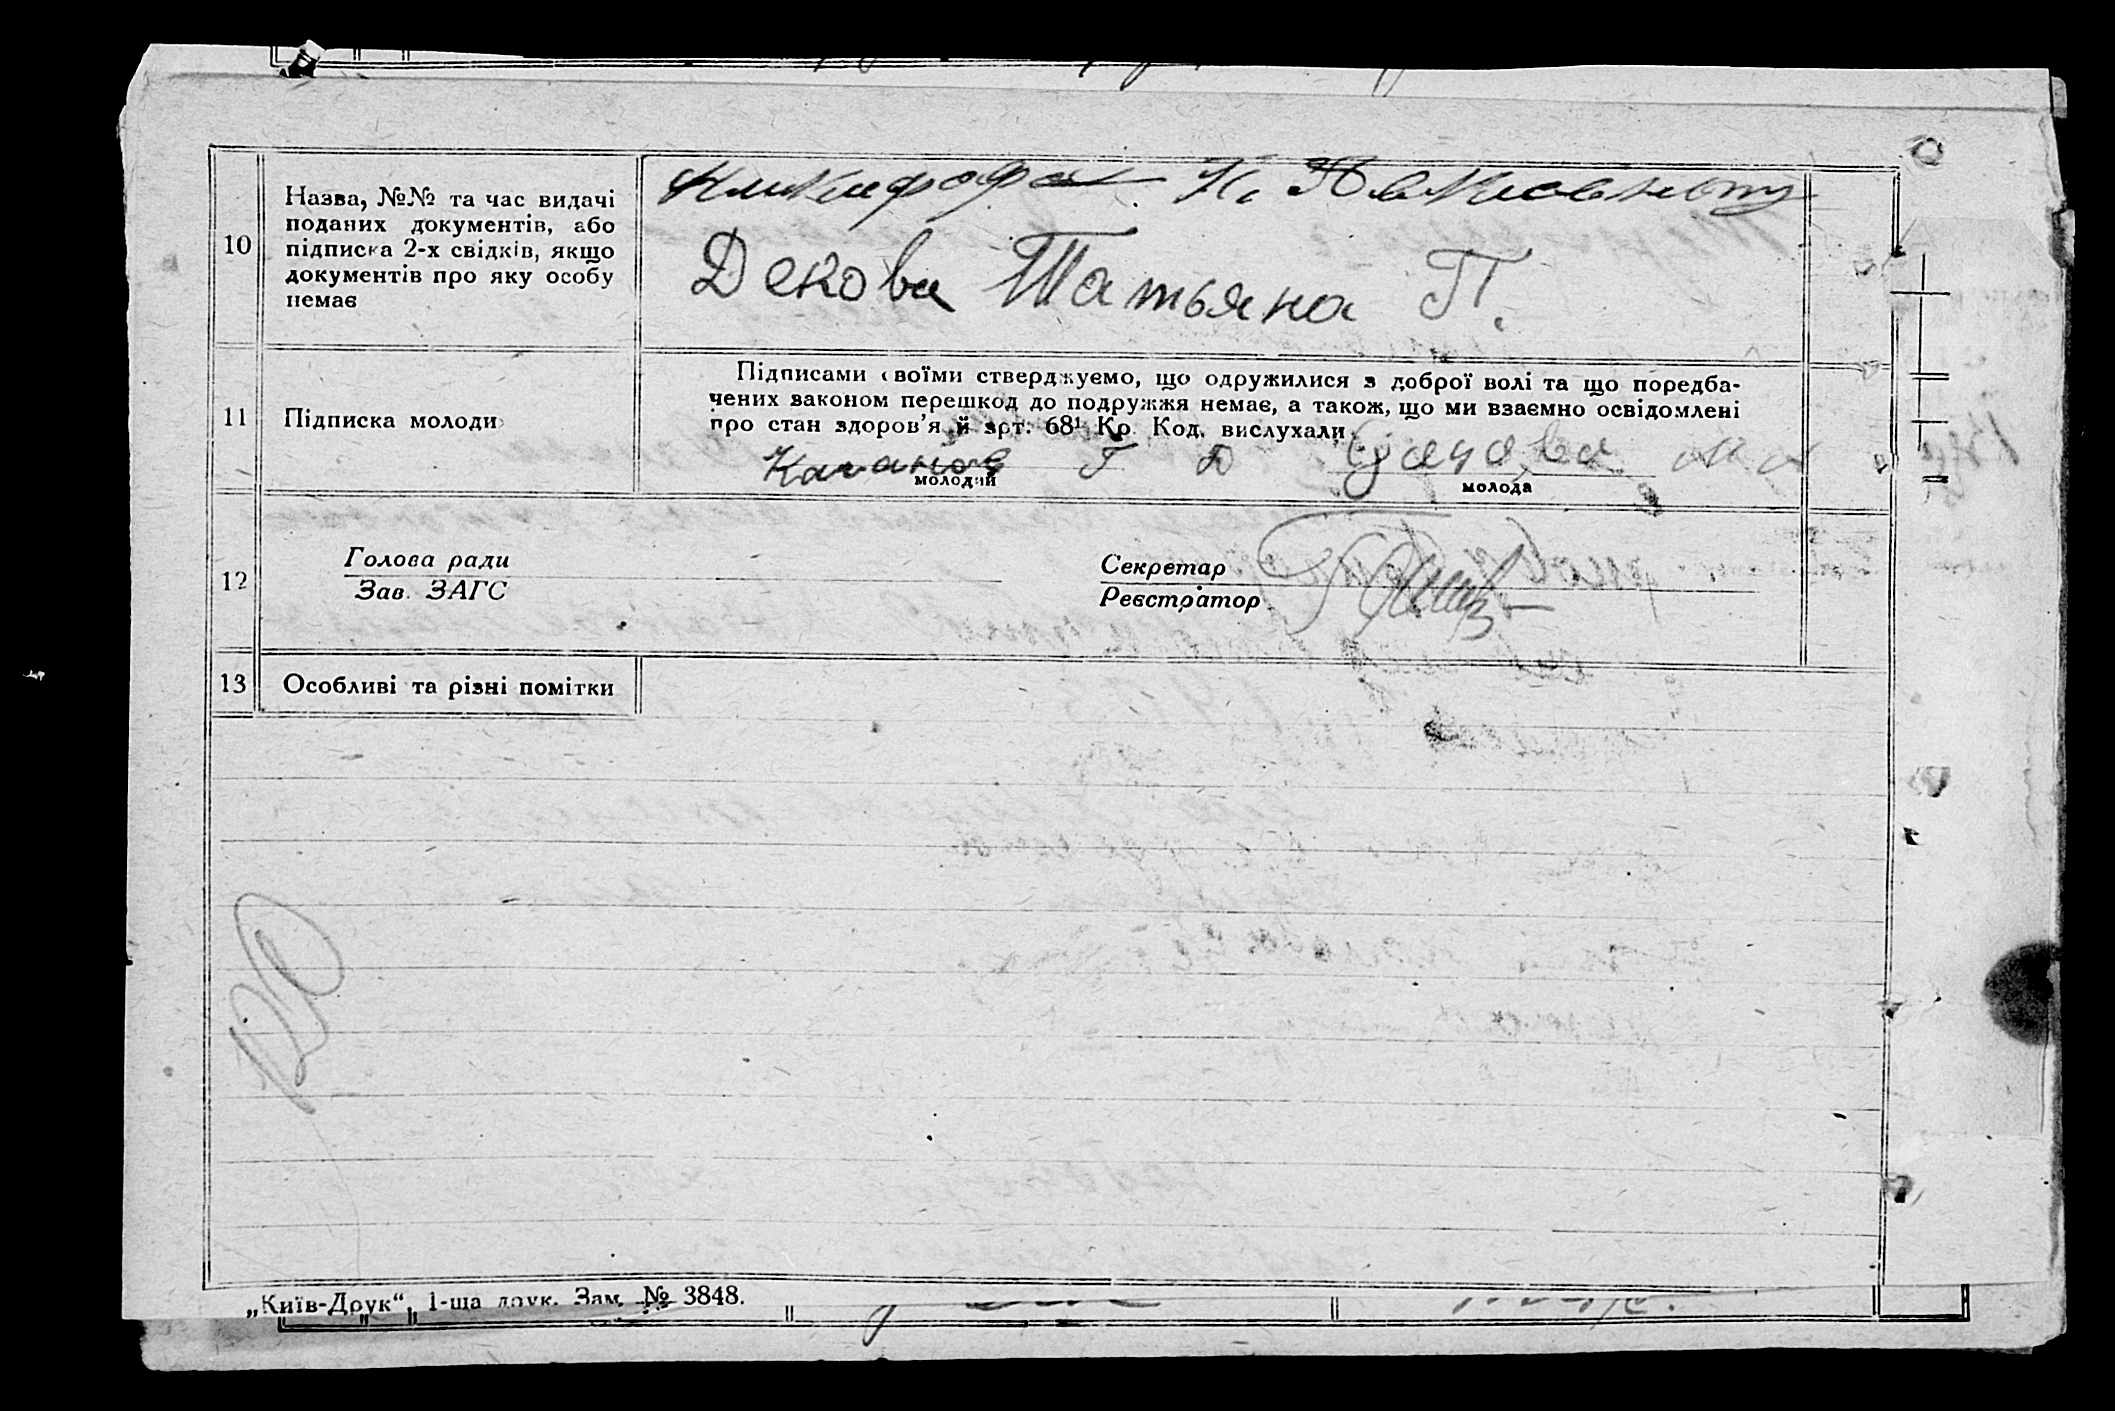 10
Назва, №№ та час видачі
поданих документів, або
підписка 2-х свідків, якщо
документів про яку особу
немає
Декова Татьяна П.
11
Підписка молоди
Підписами своїми стверджуємо, що одружилися з доброї волі та що поредба-
чених законом перешкод до подружжя немає, а також, що ми взаємно освідомлені
про стан здоров'я й арт. 68¹ Кр. Код. вислухали
Каганов Г Д
молодий
молода
12
Голова ради
Зав. ЗАГС
Секретар
Реєстратор
13
Особливі та різні помітки
„Київ-Друк“, 1-ша друк. Зам. № 3848.